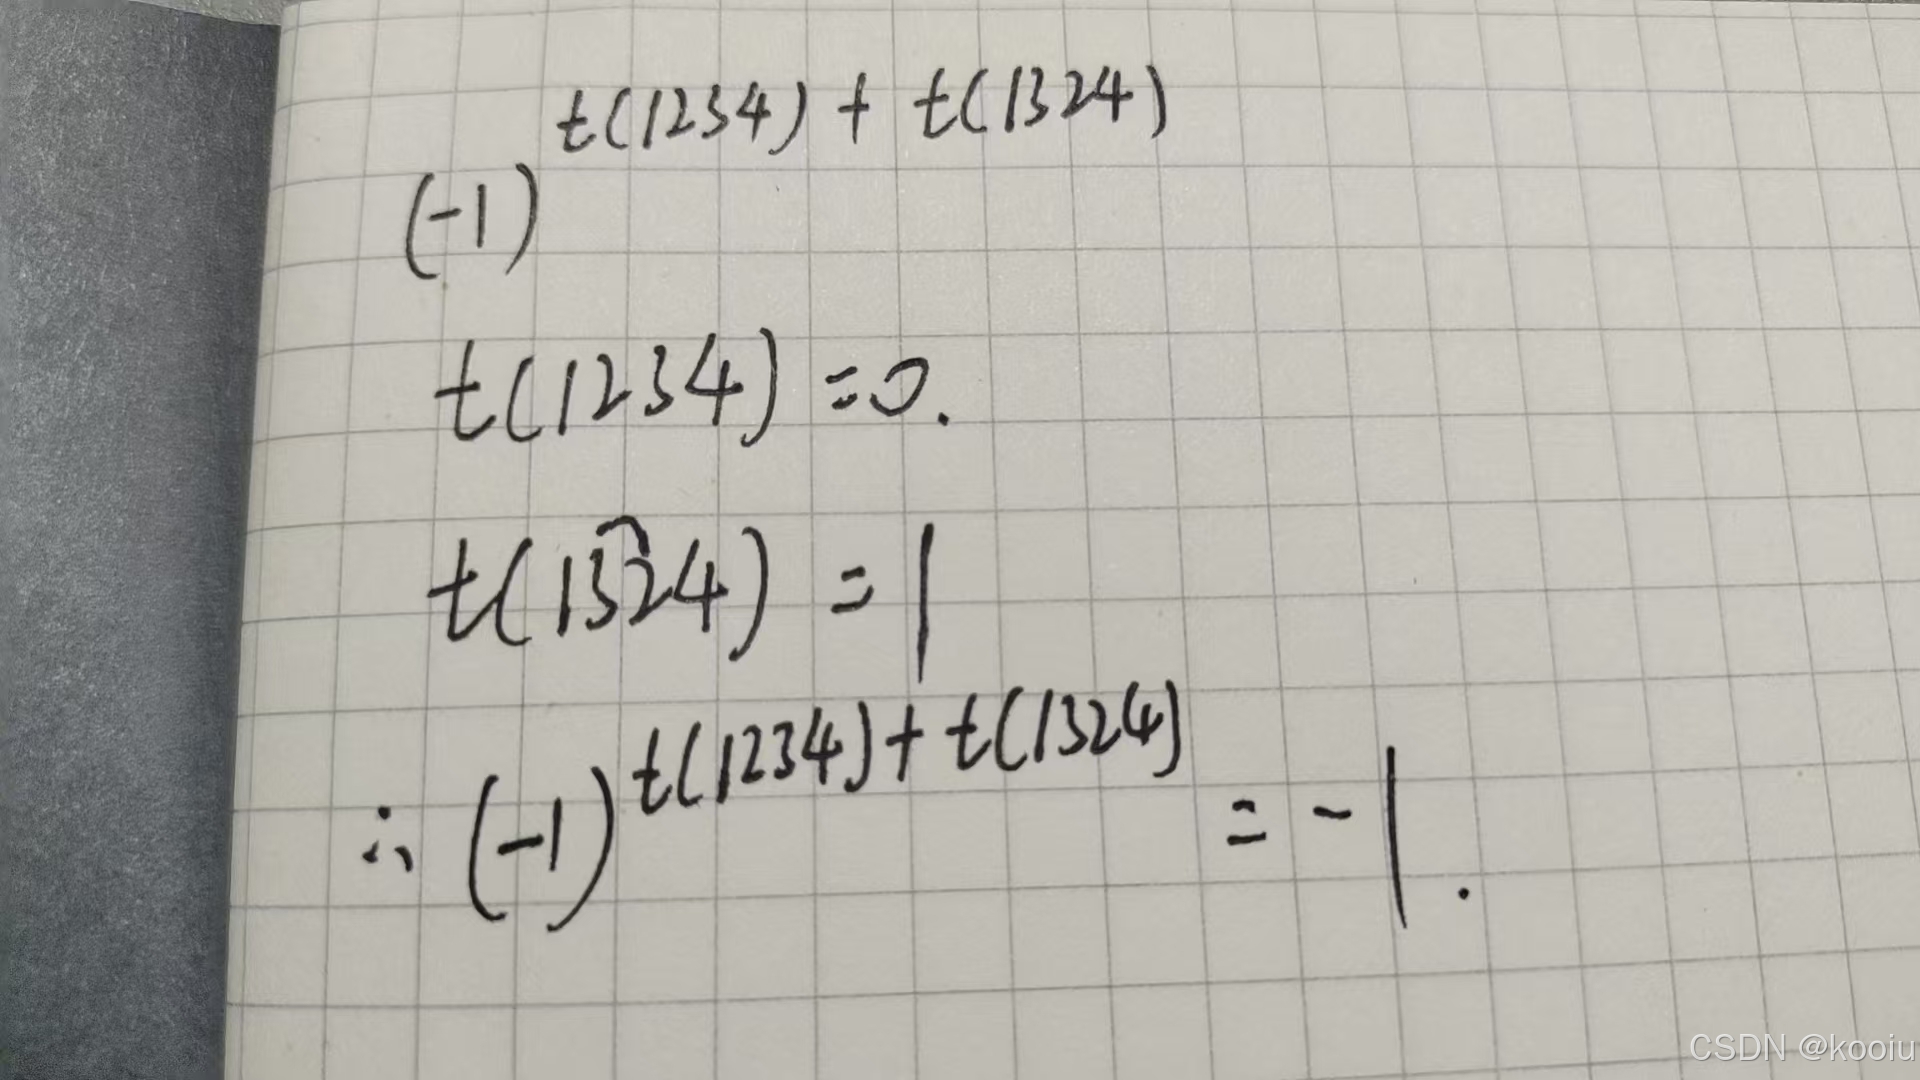 (-1)^{t(1234) + t(1324)}
t(1234) = 0.
t(1324) = 1
∴ (-1)^{t(1234) + t(1324)} = -1.
CSDN @kooiu